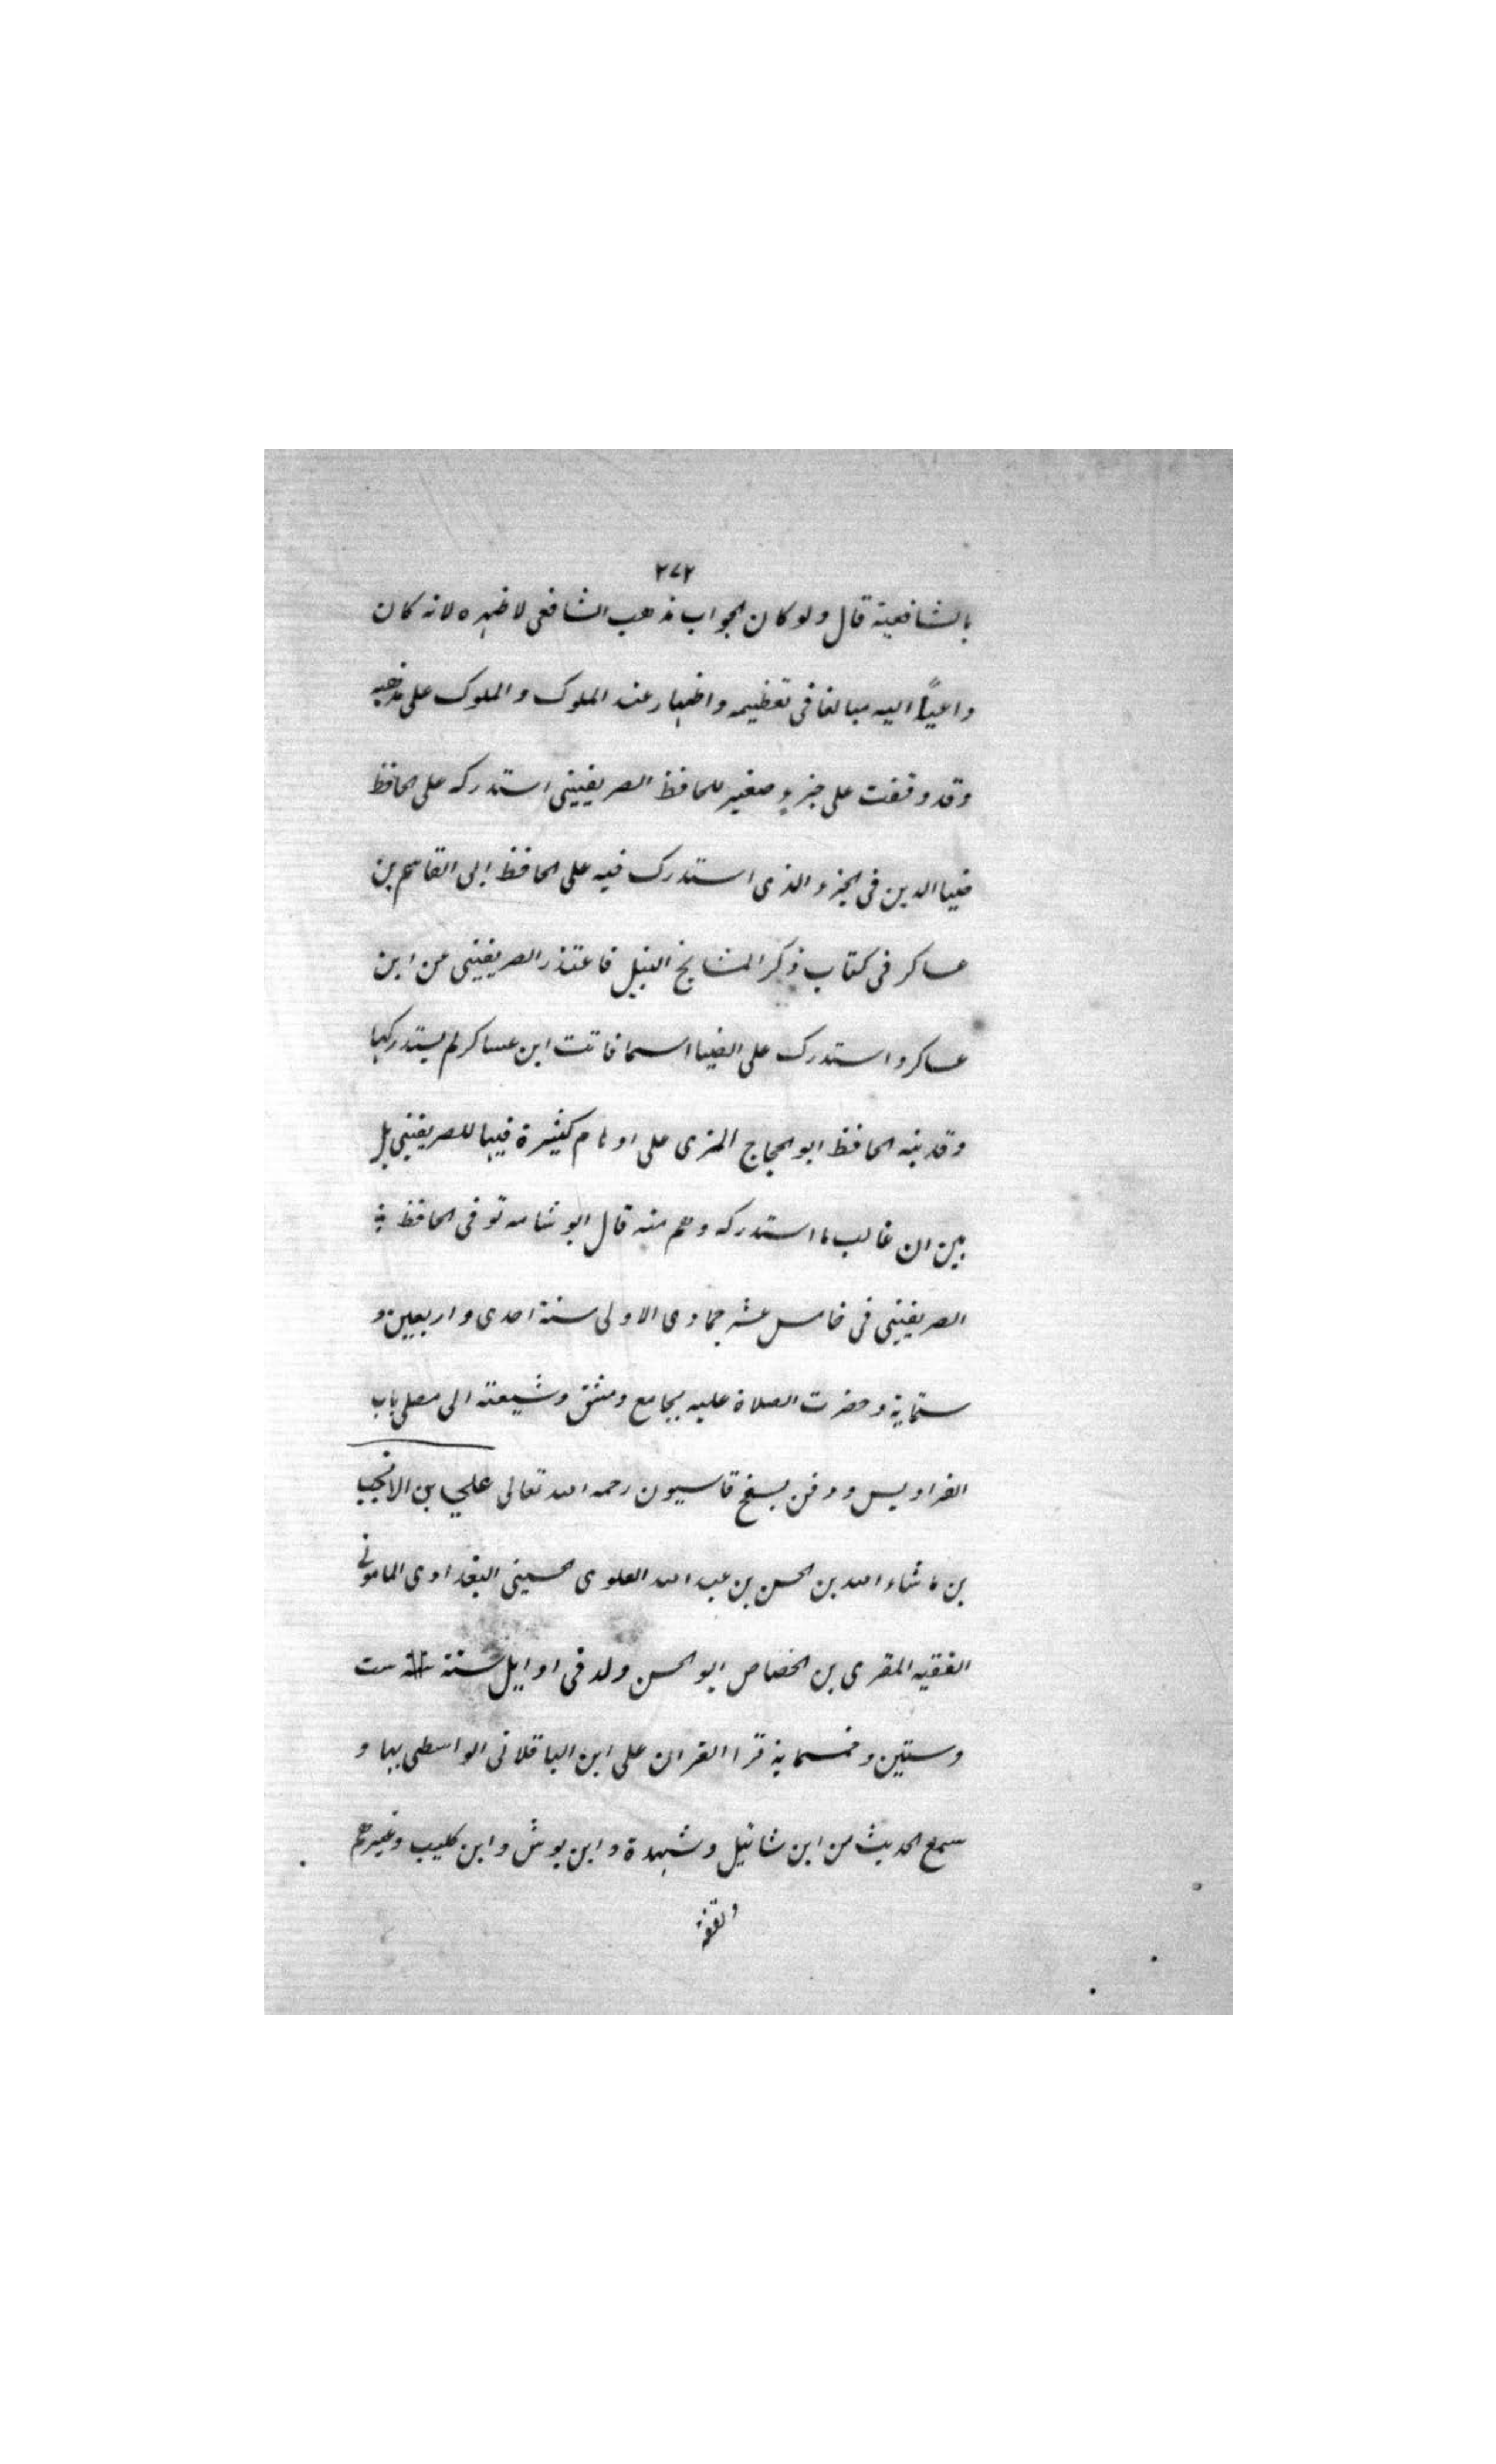 ٢٧٢
بالشافعية قال ولو كان الجواب مذهب الشافعى لاظهره لانه كان
داعياً اليه مبالغا فى تعظيمه واظهار عند الملوك والملوك على مذهبه
وقد وقفت على جزء صغير للحافظ الصريفينى استدركه على الحافظ
ضيا الدين فى الجزء الذى استدرك فيه على الحافظ ابى القاسم بن
عساكر فى كتاب ذكر المشايخ النبل فاعتذر الصريفينى عن ابن
عساكر واستدرك على الضيا اسما فاتت ابن عساكر لم يستدركها
وقد نبه الحافظ ابو الحجاج المزى على اوهام كثيرة فيها للصريفينى بل
بين ان غالب ما استدركه وهم منه قال ابو شامه توفى الحافظ
الصريفينى فى خامس عشر جمادى الاولى سنة احدى واربعين و
ستماية وحضرت الصلاة عليه بجامع دمشق وشيعته الى مصلى باب
الفراديس ودفن بسفح قاسيون رحمه الله تعالى علي بن الانجب
بن ما شاء الله بن الحسن بن عبد الله العلوى الحسينى البغدادى المامونى
الفقيه المقرى بن الخصاص ابو الحسن ولد فى اوايل سنة ست
وستين وخمسماية قرا القران على ابن الباقلانى الواسطى بها و
سمع الحديث من ابن شاتيل وشهدة وابن بوش وابن كليب وغيرهم
وتفقه